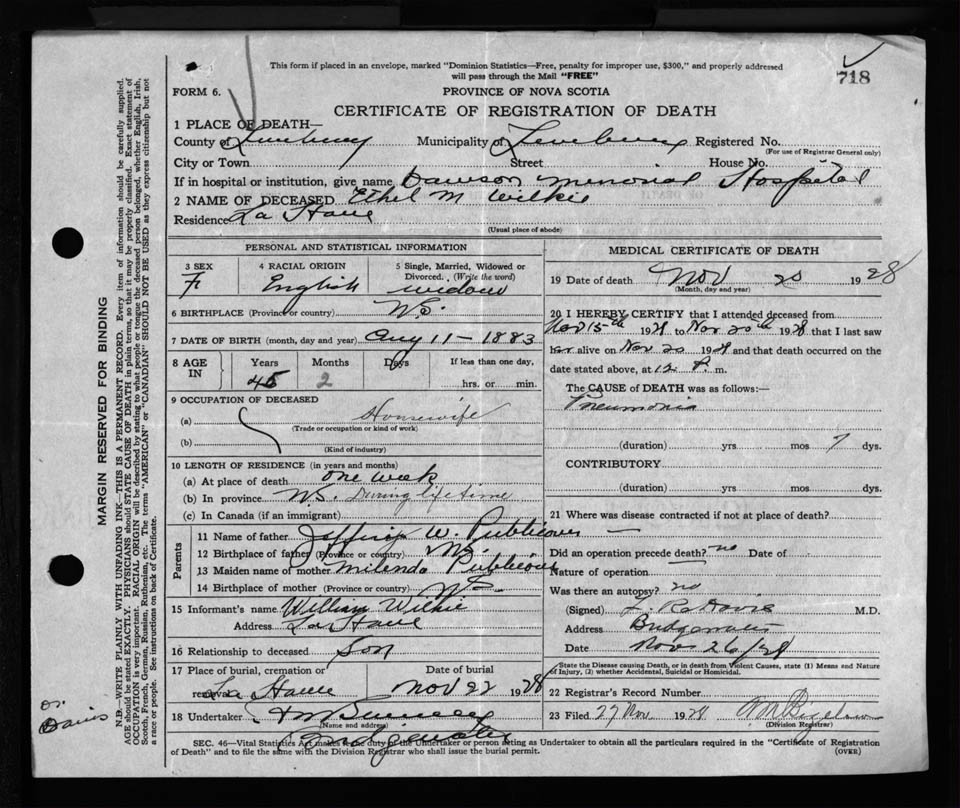 This form if placed in an envelope, marked "Dominion Statistics—Free, penalty for improper use, $300," and properly addressed
will pass through the Mail "FREE"
718
FORM 6. PROVINCE OF NOVA SCOTIA
CERTIFICATE OF REGISTRATION OF DEATH
1 PLACE OF DEATH—
County of Lunenburg Municipality of Lunenburg Registered No.
(For use of Registrar General only)
City or Town Street House No.
If in hospital or institution, give name Dawson Memorial Hospital
2 NAME OF DECEASED Ethel M Wilkie
Residence La Have
(Usual place of abode)
PERSONAL AND STATISTICAL INFORMATION
3 SEX 4 RACIAL ORIGIN 5 Single, Married, Widowed or Divorced. (Write the word)
F English widow
6 BIRTHPLACE (Province or country) N.S.
7 DATE OF BIRTH (month, day and year) Aug 11 - 1883
8 AGE IN Years Months Days If less than one day,
45 2 hrs. or min.
9 OCCUPATION OF DECEASED
(a) Housewife
(Trade or occupation or kind of work)
(b)
(Kind of industry)
10 LENGTH OF RESIDENCE (in years and months)
(a) At place of death one week
(b) In province N.S. During life time
(c) In Canada (if an immigrant)
Parents
11 Name of father W. Publicover
12 Birthplace of father (Province or country) N.S.
13 Maiden name of mother Milinda Publicover
14 Birthplace of mother (Province or country) N.S.
15 Informant's name William Wilkie
Address La Have
16 Relationship to deceased Son
17 Place of burial, cremation or removal La Have Date of burial Nov 22 1928
18 Undertaker
(Name and address)
Bridgewater
MEDICAL CERTIFICATE OF DEATH
19 Date of death Nov 20 1928
(Month, day and year)
20 I HEREBY CERTIFY that I attended deceased from
Nov 15th 1928 to Nov 20th 1928 that I last saw
her alive on Nov 20 1928 and that death occurred on the
date stated above, at 12 P. m.
The CAUSE of DEATH was as follows:—
Pneumonia
(duration) yrs. mos 7 dys.
CONTRIBUTORY
(duration) yrs. mos. dys.
21 Where was disease contracted if not at place of death?
Did an operation precede death? no Date of
Nature of operation
Was there an autopsy? no
(Signed) Davis M.D.
Address Bridgewater
Date Nov 26/28
State the Disease causing Death, or in death from Violent Causes, state (1) Means and Nature of Injury, (2) whether Accidental, Suicidal or Homicidal.
22 Registrar's Record Number
23 Filed 27 Nov. 1928
(Division Registrar)
SEC. 46—Vital Statistics Act makes it the duty of the Undertaker or person acting as Undertaker to obtain all the particulars required in the "Certificate of Registration
of Death" and to file the same with the Division Registrar who shall issue the burial permit. (OVER)
MARGIN RESERVED FOR BINDING
N.B.—WRITE PLAINLY WITH UNFADING INK—THIS IS A PERMANENT RECORD. Every item of information should be carefully supplied.
AGE should be stated EXACTLY. PHYSICIANS should STATE CAUSE OF DEATH in plain terms, so that it may be properly classified. Exact statement of
OCCUPATION is very important. RACIAL ORIGIN will be described by stating to what people or tongue the deceased person belonged, whether English, Irish,
Scotch, French, German, Russian, Ruthenian, etc. The terms "AMERICAN" or "CANADIAN" SHOULD NOT BE USED as they express citizenship but not
a race or people. See instructions on back of Certificate.